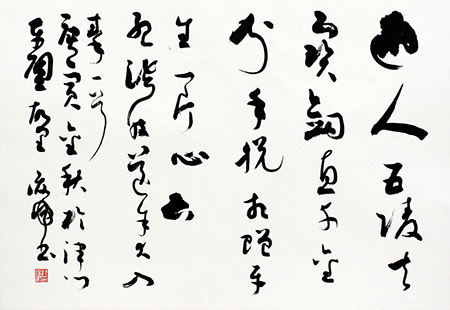 遊人五陵去
寶劍直千金
分手脱相贈平
生一片心右
孟浩然送朱大入
秦一首
庚寅金秋於津門
書